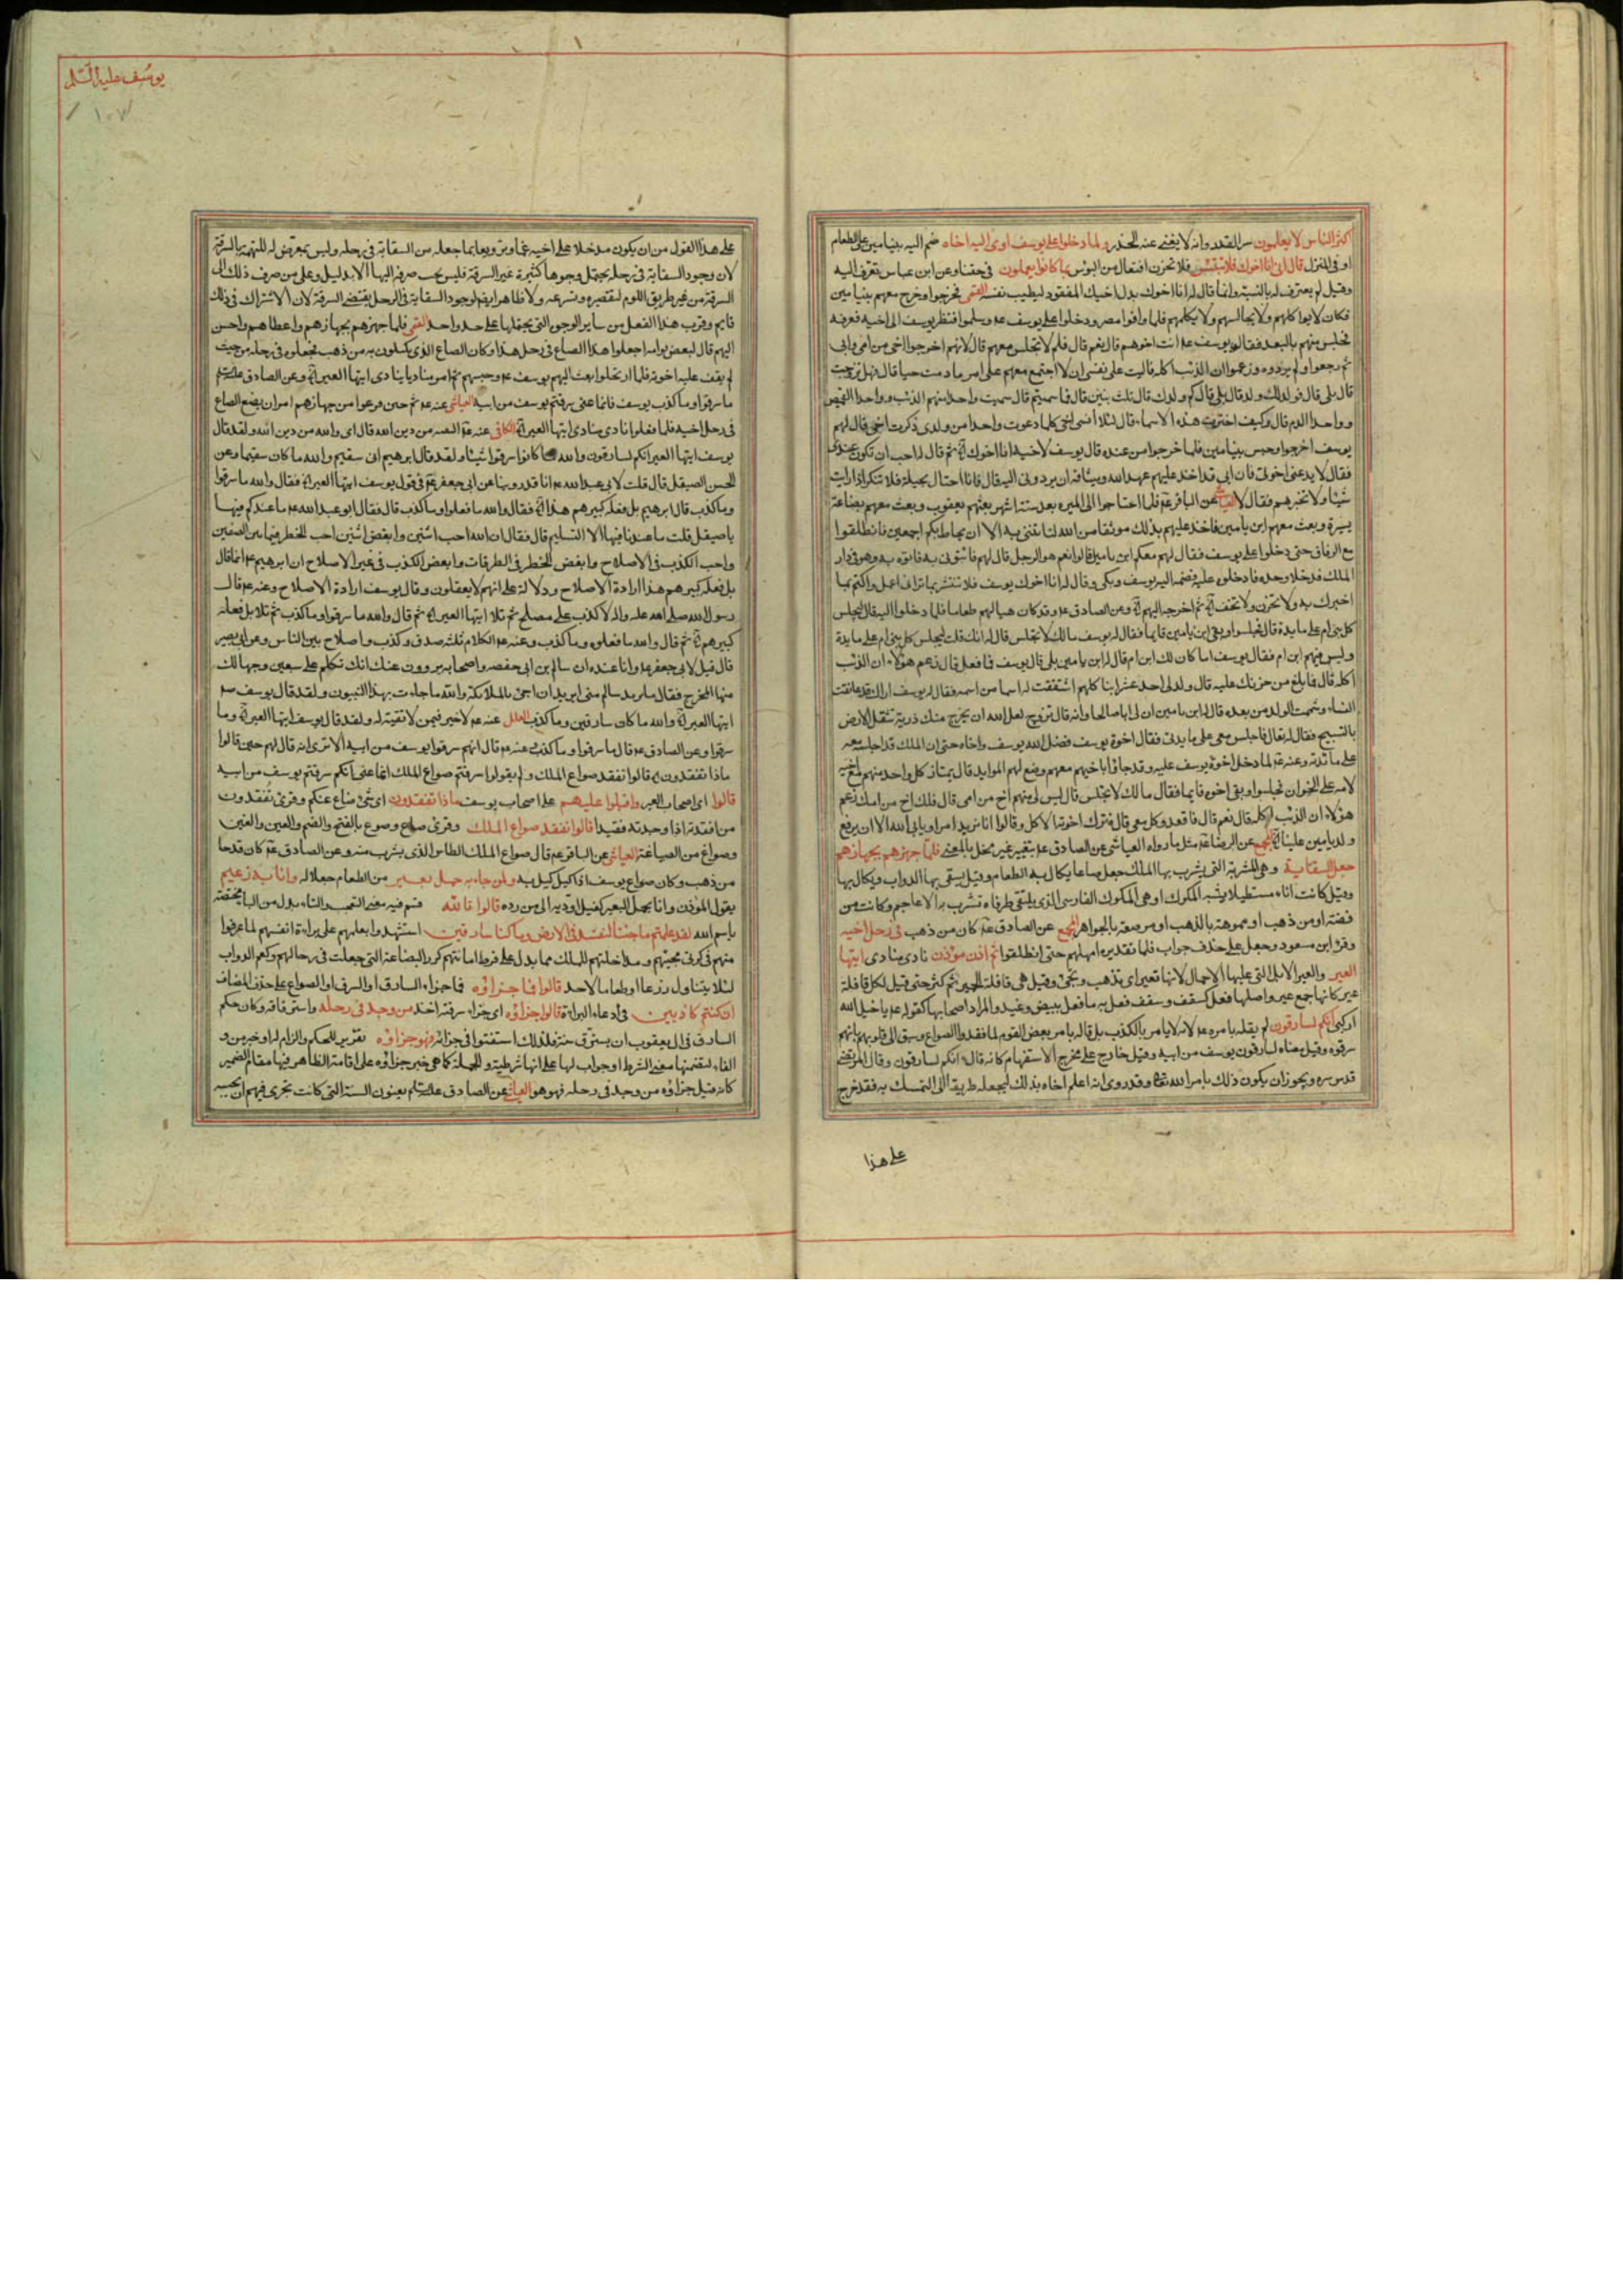 اكثر الناس لا يعلمون سر القدر وانه لا يغنى عنه الحذر ولما دخلوا على يوسف اوى اليه اخاه ضم اليه بنيامين على الطعام
او فى المنزل قال انى انا اخوك فلا تبتئس فلا تحزن افتعال من البؤس بما كانوا يعملون فى حقنا وعن ابن عباس تعرف اليه
وقيل لم يعترف له بالنسبة وانما قال له انا اخوك بدل اخيك المفقود ليطيب نفسه القمى فخرجوا وخرج معهم بنيامين
فكان لا يواكلهم ولا يجالسهم ولا يكلمهم فلما وافوا مصر ودخلوا على يوسف عم وسلموا فنظر يوسف الى اخيه فعرفه
فجلس منهم بالبعد فقال له يوسف عم انت اخوهم قال نعم قال فلم لا تجلس معهم قال لانهم اخرجوا اخى من امى وابى
ثم رجعوا ولم يردوه وزعموا ان الذئب اكله فاليت على نفسى ان لا اجتمع معهم على امر ما دمت حيا قال فهل تزوجت
قال بلى قال فولد لك ولد قال بلى قال كم ولد لك قال ثلث بنين قال فما سميتهم قال سميت واحدا منهم الذئب وواحدا القميص
وواحدا الدم قال وكيف اخترت هذه الاسماء قال لئلا انسى اخى كلما دعوت واحدا من ولدى ذكرت اخى قال لهم
يوسف اخرجوا وحبس بنيامين فلما خرجوا من عنده قال يوسف لاخيه انا اخوك ثم قال له احب ان تكون عندى
فقال لا يدعنى اخوتى فان ابى قد اخذ عليهم عهد الله وميثاقه ان يردونى اليه قال فانا احتال بحيلة فلا تنكر اذا رايت
شيئا ولا تخبرهم فقال لا العياشى عن الباقر عم فلما احتاجوا الى الميرة بعد ستة اشهر بعثهم يعقوب وبعث معهم بضاعة
يسيرة وبعث معهم ابن يامين فاخذ عليهم بذلك موثقا من الله لتاتننى به الا ان يحاط بكم اجمعين فانطلقوا
مع الرفاق حتى دخلوا على يوسف فقال لهم معكم ابن يامين قالوا نعم هو الرجل قال لهم فاتونى به فاتوه به وهو فى دار
الملك فدخلا وحده فادخلوه عليه فضمه اليه يوسف وبكى وقال له انا اخوك يوسف فلا تبتئس بما ترانى اعمل واكتم بما
اخبرتك به ولا تحزن ولا تخف ثم اخرجه اليهم وعن الصادق عم وقد كان هيا لهم طعاما فلما دخلوا اليه قال ليجلس
كل بنى ام على مايدة قال فجلسوا وبقى ابن يامين قايما فقال له يوسف مالك لا تجلس قال له انك قلت ليجلس كل بنى ام على مايدة
وليس فيهم ابن ام فقال يوسف اما كان لك ابن ام قال له ابن يامين بلى قال يوسف فما فعل قال زعم هؤلاء ان الذئب
اكله قال فما بلغ من حزنك عليه قال ولد لى احد عشر ابنا كلهم اشتققت له اسما من اسمه فقال له يوسف اراك قد عانقت
النساء وشممت الولد من بعده قال له ابن يامين ان لى ابا صالحا وانه قال تزوج لعل الله ان يخرج منك ذرية تثقل الارض
بالتسبيح فقال له تعال فاجلس معى على مايدتى فقال اخوة يوسف فضل الله يوسف واخاه حتى ان الملك قد اجلسه معه
على مائدته وعنه عم لما دخل اخوة يوسف عليه وقد جاؤا باخيهم معهم وضع لهم الموايد قال يمتاز كل واحد منهم مع اخيه
لامه على الخوان فجلسوا وبقى اخوه قايما فقال مالك لا تجلس قال ليس لى منهم اخ من امى قال فلك اخ من امك زعم
هؤلاء ان الذئب اكله قال نعم قال فاقعد وكل معى قال فترك اخوته الاكل وقالوا انا نريد امرا ويابى الله الا ان يرفع
ولد يامين علينا المجمع عن الرضا عم مثل ما رواه العياشى عن الصادق عم بتغيير غير مخل بالمعنى فلما جهزهم بجهازهم
جعل السقاية وهى المشربة التى يشرب بها الملك جعل صاعا يكال به الطعام وقيل يسقى بها الدواب ويكال بها
وقيل كانت اناء مستطيلا يشبه المكوك او هى المكوك الفارسى الذى يلتقى طرفاه تشرب به الاعاجم وكانت من
فضة او من ذهب او مموهة بالذهب او مرصعة بالجواهر المجمع عن الصادق عم كان من ذهب فى رحل اخيه
وقرء ابن مسعود وجعل على حذف جواب فلما تقديره امهلهم حتى انطلقوا ثم اذن مؤذن نادى منادى ايتها
العير والعير الابل التى عليها الاحمال لانها تعير اى تذهب وتجئ وقيل هى قافلة الحمير ثم كثر حتى قيل لكل قافلة
عير كانها جمع عير واصلها فعل كسقف وسقف فعل به ما فعل ببيض وغيد والمراد اصحابها كقوله عم يا خيل الله
اركبى انكم لسارقون لم يقله بامره عم لانه لا يامر بالكذب بل قاله بامر بعض القوم لما فقدوا الصواع وسبق الى قلوبهم بانهم
سرقوه وقيل معناه لسارقون يوسف من ابيه وقيل خارج على مخرج الاستفهام كانه قال انكم لسارقون وقال المرتضى
قدس سره ويجوز ان يكون ذلك بامر الله تعالى وقد روى انه اعلم اخاه بذلك ليجعله طريقا الى التمسك به فقد خرج
على هذا
يوسف عليه السلم
١٠٧
على هذا القول من ان يكون مدخلا على اخيه غما وترويعا بما جعله من السقاية فى رحله وليس بمعرض له للتهمة بالسرقة
لان وجود السقاية فى رحله يحتمل وجوها كثيرة غير السرقة فليس يجب صرفه اليها الا بدليل وعلى من صرف ذلك الى
السرقة من غير طريق اللوم لتقصيره وتسرعه ولا ظاهر ايضا لوجود السقاية فى الرحل يقتضى السرقة لان الاشتراك فى ذلك
قايم وقرب هذا الفعل من ساير الوجوه التى يحتملها على حد واحد القمى فلما جهزهم بجهازهم واعطاهم واحسن
اليهم قال لبعض قوامه اجعلوا هذا الصاع فى رحل هذا وكان الصاع الذى يكيلون به من ذهب فجعلوه فى رحله من حيث
لم يقف عليه اخوته فلما ارتحلوا بعث اليهم يوسف عم وحبسهم ثم امر مناديا ينادى ايتها العير وعن الصادق عليه السلم
ما سرقوا وما كذب يوسف فانما عنى سرقتم يوسف من ابيه العياشى عنه عم ثم حين فرغوا من جهازهم امر ان يضع الصاع
فى رحل اخيه فلما فعلوا نادى منادى ايتها العير الكافى عنه عم التقية من دين الله قال اى والله من دين الله ولقد قال
يوسف ايتها العير انكم لسارقون والله ما كانوا سرقوا شيئا ولقد قال ابرهيم انى سقيم والله ما كان سقيما وعن
الحسن الصيقل قال قلت لابى عبد الله عم انا قد روينا عن ابى جعفر عم فى قول يوسف ايتها العير فقال والله ما سرقوا
وما كذب قال ابرهيم بل فعله كبيرهم هذا فقال والله ما فعلوا وما كذب قال فقال ابو عبد الله عم ما عندكم فيها
يا صيقل قلت ما عندنا فيها الا التسليم قال فقال ان الله احب اثنين وابغض اثنين احب الخطر فيما بين الصفين
واحب الكذب فى الاصلاح وابغض الخطر فى الطرقات وابغض الكذب فى غير الاصلاح ان ابرهيم عم انما قال
بل فعله كبيرهم هذا ارادة الاصلاح ودلالة على انهم لا يعقلون وقال يوسف ارادة الاصلاح وعنه عم قال
رسول الله صلى الله عليه واله لا كذب على مصلح ثم تلا ايتها العير ثم قال والله ما سرقوا وما كذب ثم تلا بل فعله
كبيرهم ثم قال والله ما فعلوه وما كذب وعنه عم الكلام ثلثة صدق وكذب واصلاح بين الناس وعن ابى بصير
قال قيل لابى جعفر عم وانا عنده ان سالم بن ابى حفصه واصحابه يروون عنك انك تكلم على سبعين وجها لك
منها المخرج فقال ما يريد سالم منى ايريد ان اجئ بالملائكة والله ما جاءت بهذا النبيون ولقد قال يوسف عم
ايتها العير والله ما كان سارقين وما كذب العلل عنه عم لا خير فيمن لا تقية له ولقد قال يوسف ايتها العير وما
سرقوا وعن الصادق عم قال ما سرقوا وما كذب عنه عم قال انهم سرقوا يوسف من ابيه الا ترى انه قال لهم حين قالوا
ماذا تفقدون قالوا نفقد صواع الملك ولم يقولوا سرقتم صواع الملك انما عنى انكم سرقتم يوسف من ابيه
قالوا اى اصحاب العير واقبلوا عليهم على اصحاب يوسف ماذا تفقدون اى شئ ضاع عنكم وقرئ تفقدون
من افقدته اذا وجدته فقيدا قالوا نفقد صواع الملك وقرئ صاع وصوع بالفتح والضم والعين والغين
وصواغ من الصياغة العياشى عن الباقر عم قال صواع الملك الطاس الذى يشرب منه وعن الصادق عم كان قدحا
من ذهب وكان صواع يوسف اذا كيل كيل به ولمن جاء به حمل بعير من الطعام جعلا له وانا به زعيم
يقول المؤذن وانا بحمل البعير كفيل اوديه الى من رده قالوا تالله قسم فيه معنى التعجب والتاء بدل من الباء مختصة
باسم الله لقد علمتم ما جئنا لنفسد فى الارض وما كنا سارقين استشهدوا بعلمهم على براءة انفسهم لما عرفوا
منهم فى كرتى مجيئهم ومداخلتهم للملك مما يدل على فرط امانتهم كرد البضاعة التى جعلت فى رحالهم وكعم الدواب
لئلا يتناول زرعا او طعاما لاحد قالوا فما جزاؤه فما جزاء السارق او السرق او الصواع على حذف المضاف
ان كنتم كاذبين فى ادعاء البراءة قالوا جزاؤه اى جزاء سرقته اخذ من وجد فى رحله واسترقاقه وكان حكم
السارق فى ال يعقوب ان يسترق سنة فلذلك استفتوا فى جزائه فهو جزاؤه تقرير للحكم والزام له او خبر من و
الفاء لتضمنها معنى الشرط او جواب لها على انها شرطية والجملة كما هى خبر جزاؤه على اقامة الظاهر فيها مقام الضمير
كانه قيل جزاؤه من وجد فى رحله فهو هو العياشى عن الصادق عليه السلم يعنون السنة التى كانت تجرى فيهم ان يحبسه